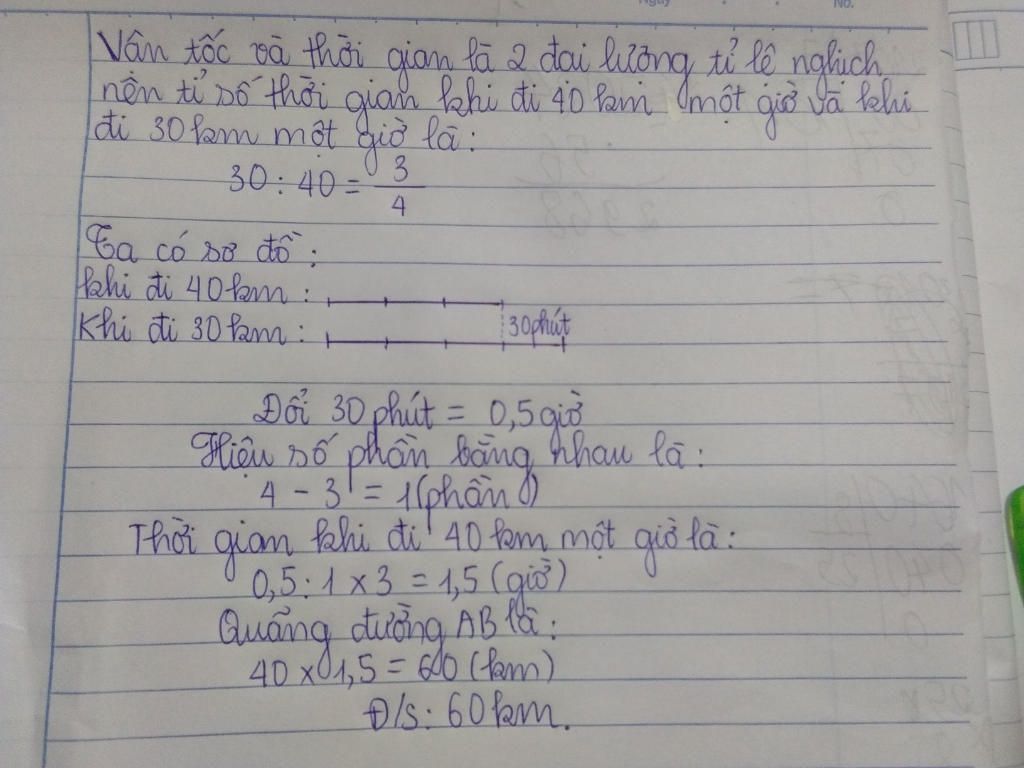 Vận tốc và thời gian là 2 đại lượng tỉ lệ nghịch
nên tỉ số thời gian khi đi 40 km một giờ và khi
đi 30 km một giờ là:
30 : 40 = 3/4
Ta có sơ đồ:
Khi đi 40 km :
Khi đi 30 km :
30 phút
Đổi 30 phút = 0,5 giờ
Hiệu số phần bằng nhau là:
4 - 3 = 1 (phần)
Thời gian khi đi 40 km một giờ là:
0,5 : 1 x 3 = 1,5 (giờ)
Quãng đường AB là:
40 x 1,5 = 60 (km)
Đ/S: 60 km.